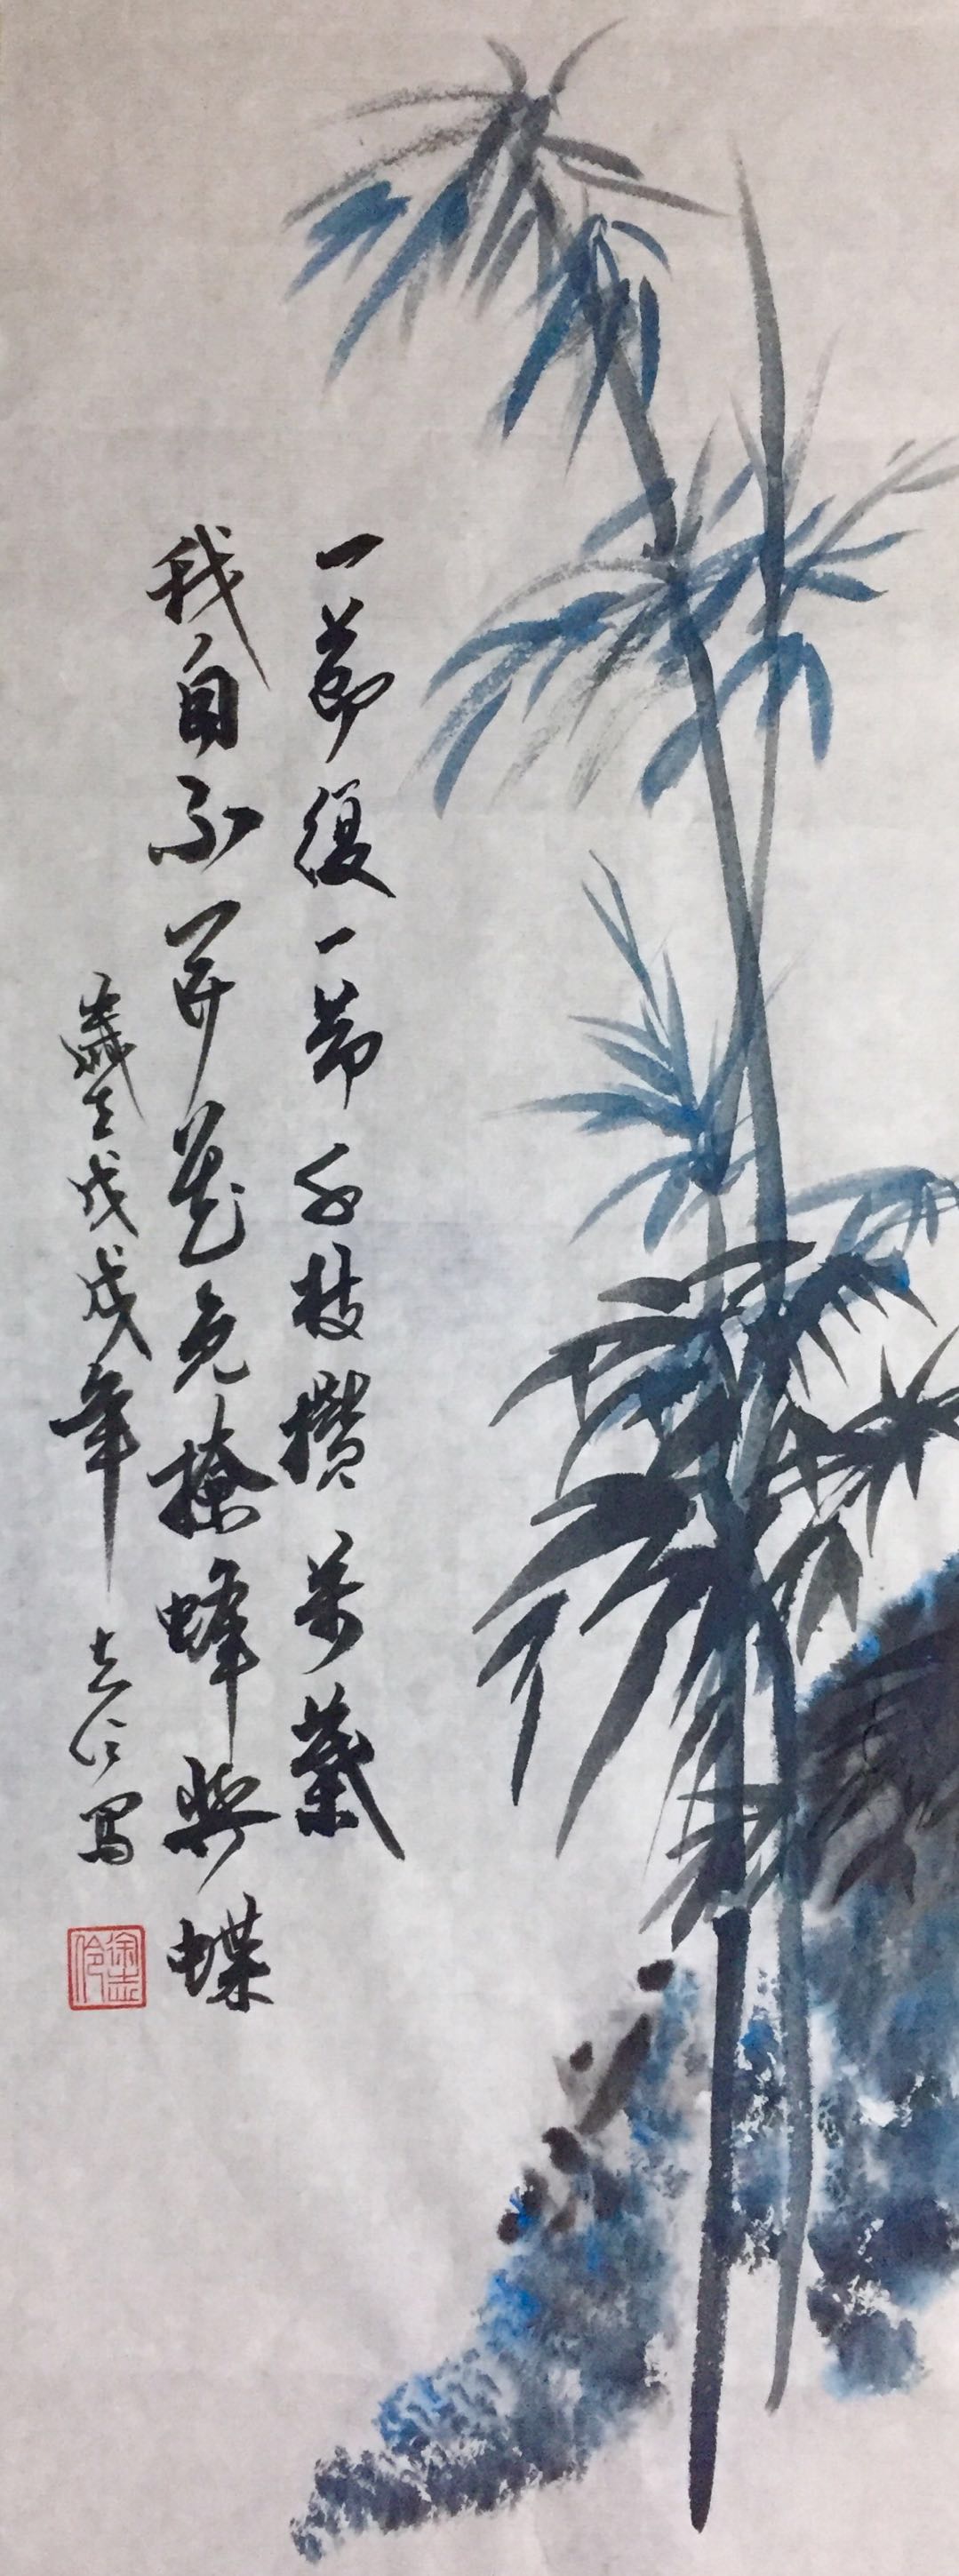 一節復一節千枝攢萬葉
我自不開花免撩蜂與蝶
歲在戊戌年志伶寫
徐志伶